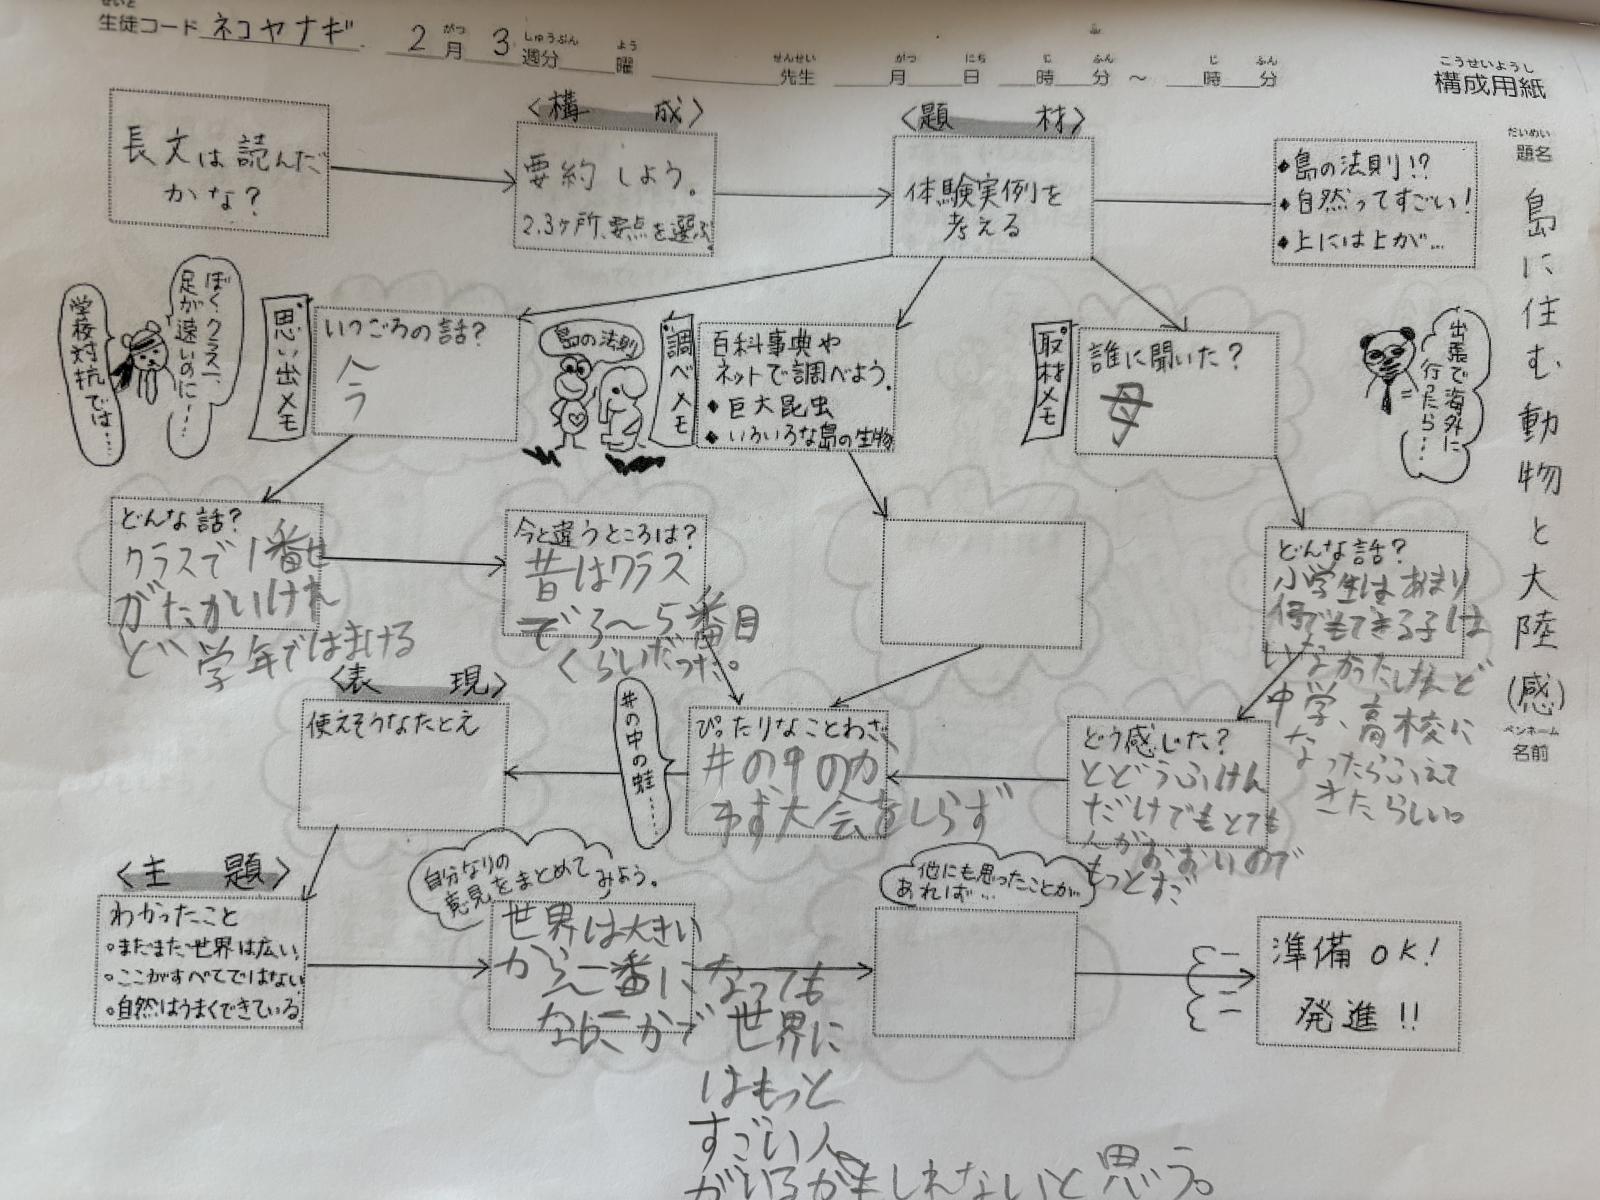 せいと
生徒コード ネコヤナギ 2月 3週分 曜 先生 月 日 時 分 ～ 時 分
がつ しゅうぶん よう せんせい がつ にち じ ふん じ ふん
こうせいようし
構成用紙
だいめい
題名
島に住む動物と大陸(感)
ペンネーム
名前
長文は読んだ
かな？
〈構 成〉
要約しよう。
2.3ヶ所、要点を選ぶ
〈題 材〉
体験実例を
考える
◆島の法則!?
◆自然ってすごい！
◆上には上が…
学校対抗では…
ぼく、クラス一、
足が速いのに…
思い出メモ
いつごろの話？
今
島の法則
調べメモ
百科事典や
ネットで調べよう。
◆巨大昆虫
◆いろいろな島の生物
取材メモ
誰に聞いた？
母
出張で海外に
行ったら…
どんな話？
クラスで1番せ
がたかいけれ
ど 学年ではまける
今と違うところは？
昔はクラス
で3～5番目
くらいだった。
どんな話？
小学生はあまり
何でもできる子は
いなかったけれど
中学、高校に
なったらふえて
きたらしい。
〈表 現〉
使えそうなたとえ
井の中の蛙……
ぴったりなことわざ
井の中のか
わず大会をしらず
どう感じた？
とどうふけん
だけでもとても
人がおおいので
もっとすご
〈主 題〉
わかったこと
◦まだまだ世界は広い
◦ここがすべてではない
◦自然はうまくできている
自分なりの
意見をまとめて
みよう。
世界は大きい
から一番になっても
世界に
はもっと
すごい人
がいるかもしれないと思う。
他にも思ったことが
あれば…
準備OK！
発進!!